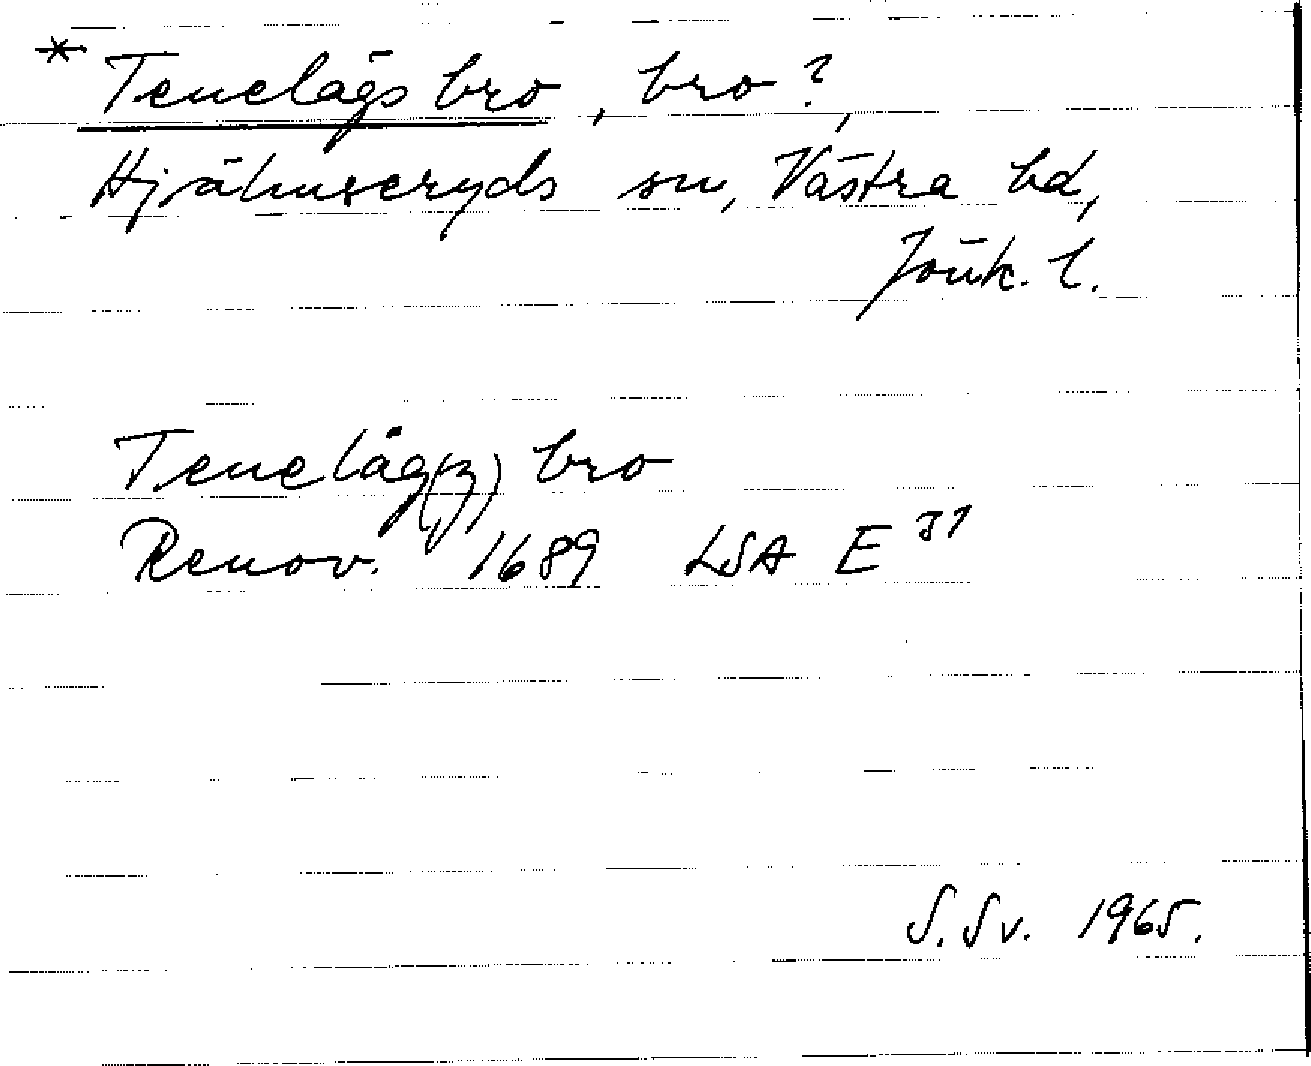 * Tenelågs bro, bro?,
Hjälmseryds sn, Västra hd,
Jönk. l.
Tenelåg(z) bro
Renov. 1689 LSA E 31
S. Sv. 1965.